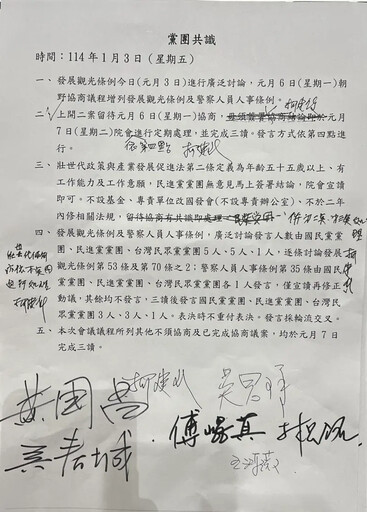 黨團共識
時間：114年1月3日（星期五）
一、發展觀光條例今日(元月3日)進行廣泛討論，元月6日(星期一)朝
野協商議程增列發展觀光條例及警察人員人事條例。
二、上開二案留待元月6日(星期一)協商，毋須簽署協商結論即於元月
7日(星期二)院會進行定期處理，並完成三讀。發言方式依第四點進
行。
三、壯世代政策與產業發展促進法第二條定義為年齡五十五歲以上、有
工作能力及工作意願，民進黨黨團無意見馬上簽署結論，院會宣讀
即可。不設基金、專責單位改國發會(不設專責辦公室)、不於二年
內修相關法規，
四、發展觀光條例及警察人員條例，廣泛討論發言人數由國民黨黨
團、民進黨黨團、台灣民眾黨黨團5人、5人、1人，逐條討論發展
觀光條例第53條及第70條之2；警察人員人事條例第35條由國民
黨黨團、民進黨黨團、台灣民眾黨黨團各1人發言，僅宣讀再修正
動議，其餘均不發言，三讀後發言國民黨黨團、民進黨黨團、台灣民
眾黨黨團3人、3人、1人。表決時不重付表決。發言採輪流交叉。
五、本次會議議程所列其他不須協商及已完成協商議案，均於元月7日
完成三讀。
黃國昌
柯建銘
吳春城
傅崐萁